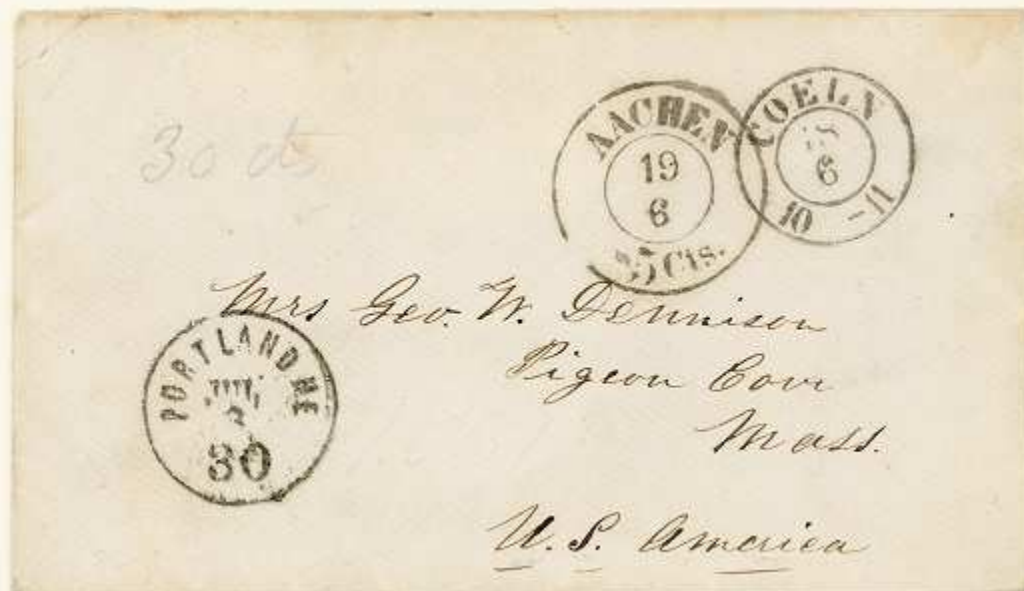 30 cts
AACHEN
19
6
5 Cts.
COELN
18
6
10 - 11
Mrs Geo. W. Dennison
Pigeon Cove
Mass.
U. S. America
PORTLAND ME
JUL
30